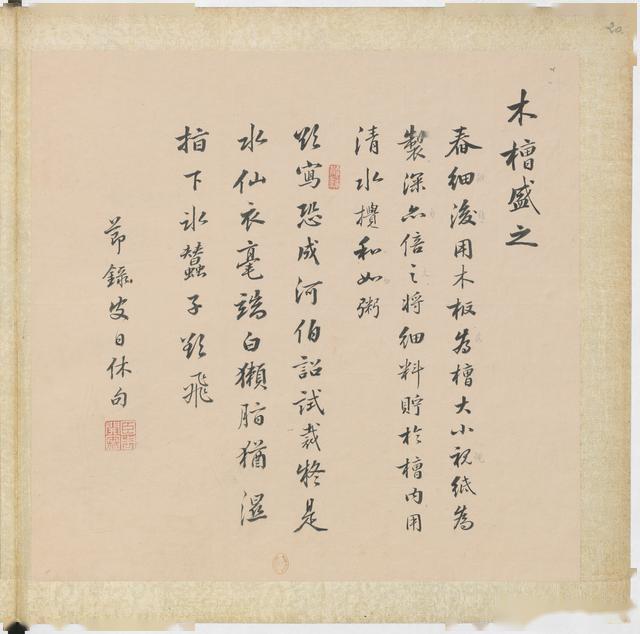 木槽盛之
舂細後用木板為槽大小視紙為
製深亦倍之將細料貯於槽內用
清水攪和如粥
欲寫恐成河伯詔試裁疑是
水仙衣毫端白獺脂猶濕
指下冰蠶子欲飛
節錄皮日休句
20